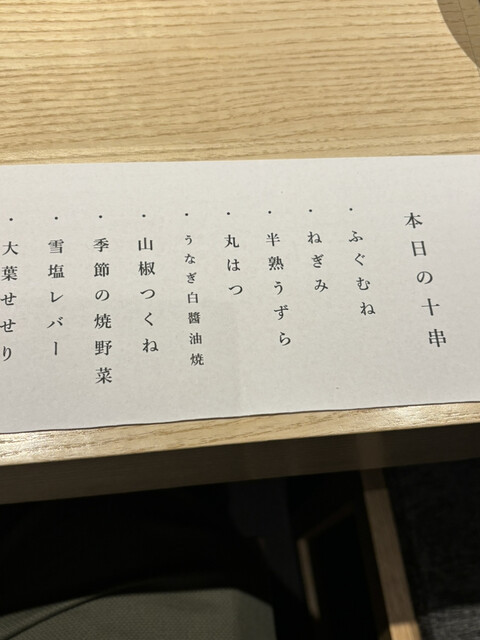 本日の十串
・ふぐむね
・ねぎみ
・半熟うずら
・丸はつ
・うなぎ白醬油焼
・山椒つくね
・季節の焼野菜
・雪塩レバー
・大葉せせり